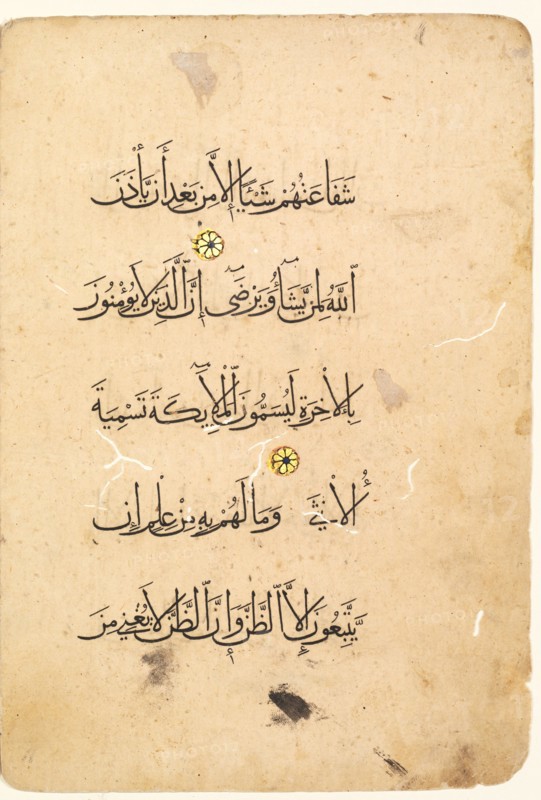 شَفَاعَتُهُمْ شَيْئًا إِلَّا مِنۢ بَعْدِ أَن يَّأْذَنَ
ٱللَّهُ لِمَن يَّشَآءُ وَيَرْضَىٰٓ إِنَّ ٱلَّذِينَ لَا يُؤْمِنُونَ
بِٱلْأٰخِرَةِ لَيُسَمُّونَ ٱلْمَلَٰٓئِكَةَ تَسْمِيَةَ
ٱلْأُنثَىٰ وَمَا لَهُمْ بِهِ مِنْ عِلْمٍ إِن
يَّتَّبِعُونَ إِلَّا ٱلظَّنَّ وَإِنَّ ٱلظَّنَّ لَا يُغْنِى مِنَ